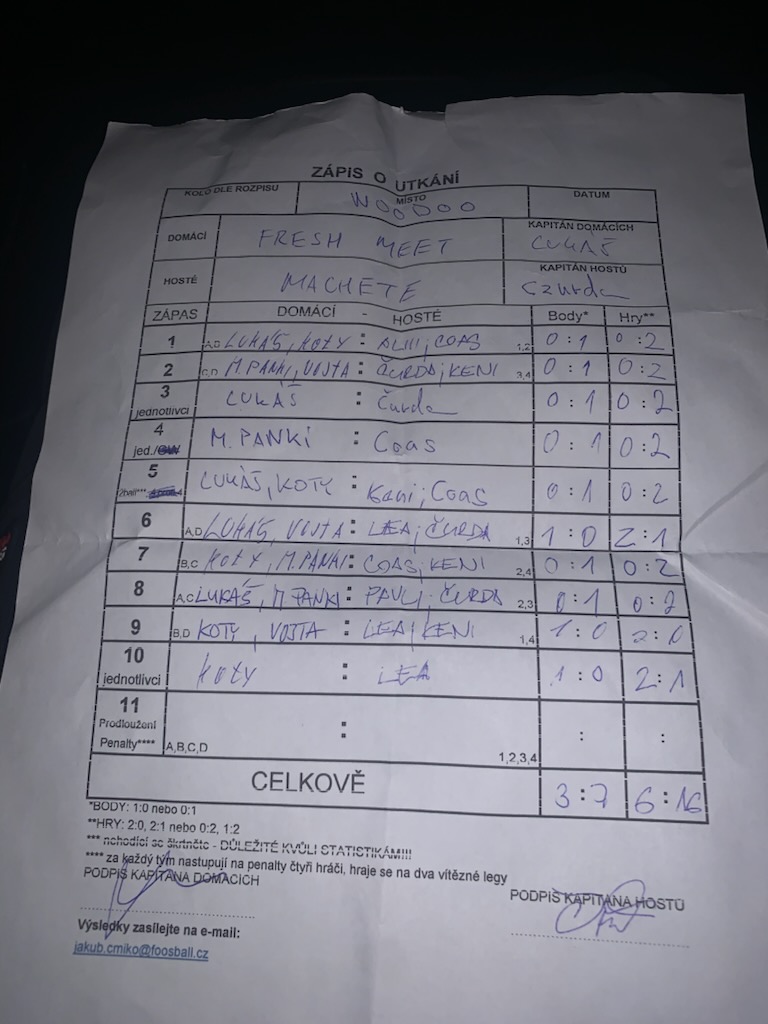 ZÁPIS O UTKÁNÍ
KOLO DLE ROZPISU MÍSTO WOODOO DATUM
DOMÁCÍ FRESH MEET KAPITÁN DOMÁCÍCH LUKÁŠ
HOSTÉ MACHETE KAPITÁN HOSTŮ Czurda
ZÁPAS DOMÁCÍ - HOSTÉ Body* Hry**
1 A,B LUKÁŠ, KOTY : COAS 1,2 0:1 0:2
2 C,D M.PANKI, VOJTA : ČURDA; KENI 3,4 0:1 0:2
3 jednotlivci LUKÁŠ : Čurda 0:1 0:2
4 jed./ M.PANKI : Coas 0:1 0:2
5 2ball***: LUKÁŠ, KOTY : Keni; Coas 0:1 0:2
6 A,D LUKÁŠ, VOJTA : LEA; ČURDA 1,3 1:0 2:1
7 B,C KOTY, M.PANKI : COAS; KENI 2,4 0:1 0:2
8 A,C LUKÁŠ, M PANKI : PAVLI; ČURDA 2,3 0:1 0:2
9 B,D KOTY, VOJTA : LEA; KENI 1,4 1:0 2:0
10 jednotlivci KOTY : LEA 1:0 2:1
11 Prodloužení Penalty**** A,B,C,D : 1,2,3,4 : :
CELKOVĚ 3:7 6:16
*BODY: 1:0 nebo 0:1
**HRY: 2:0, 2:1 nebo 0:2, 1:2
*** nehodící se škrtněte - DŮLEŽITÉ KVŮLI STATISTIKÁM!!!
**** za každý tým nastupují na penalty čtyři hráči, hraje se na dva vítězné legy
PODPIS KAPITÁNA DOMÁCÍCH PODPIS KAPITÁNA HOSTŮ
Výsledky zasílejte na e-mail:
jakub.cmiko@foosball.cz